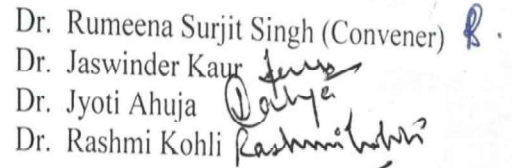 Dr. Rumeena Surjit Singh (Convener)
Dr. Jaswinder Kaur
Dr. Jyoti Ahuja
Dr. Rashmi Kohli Rashmi Kohli